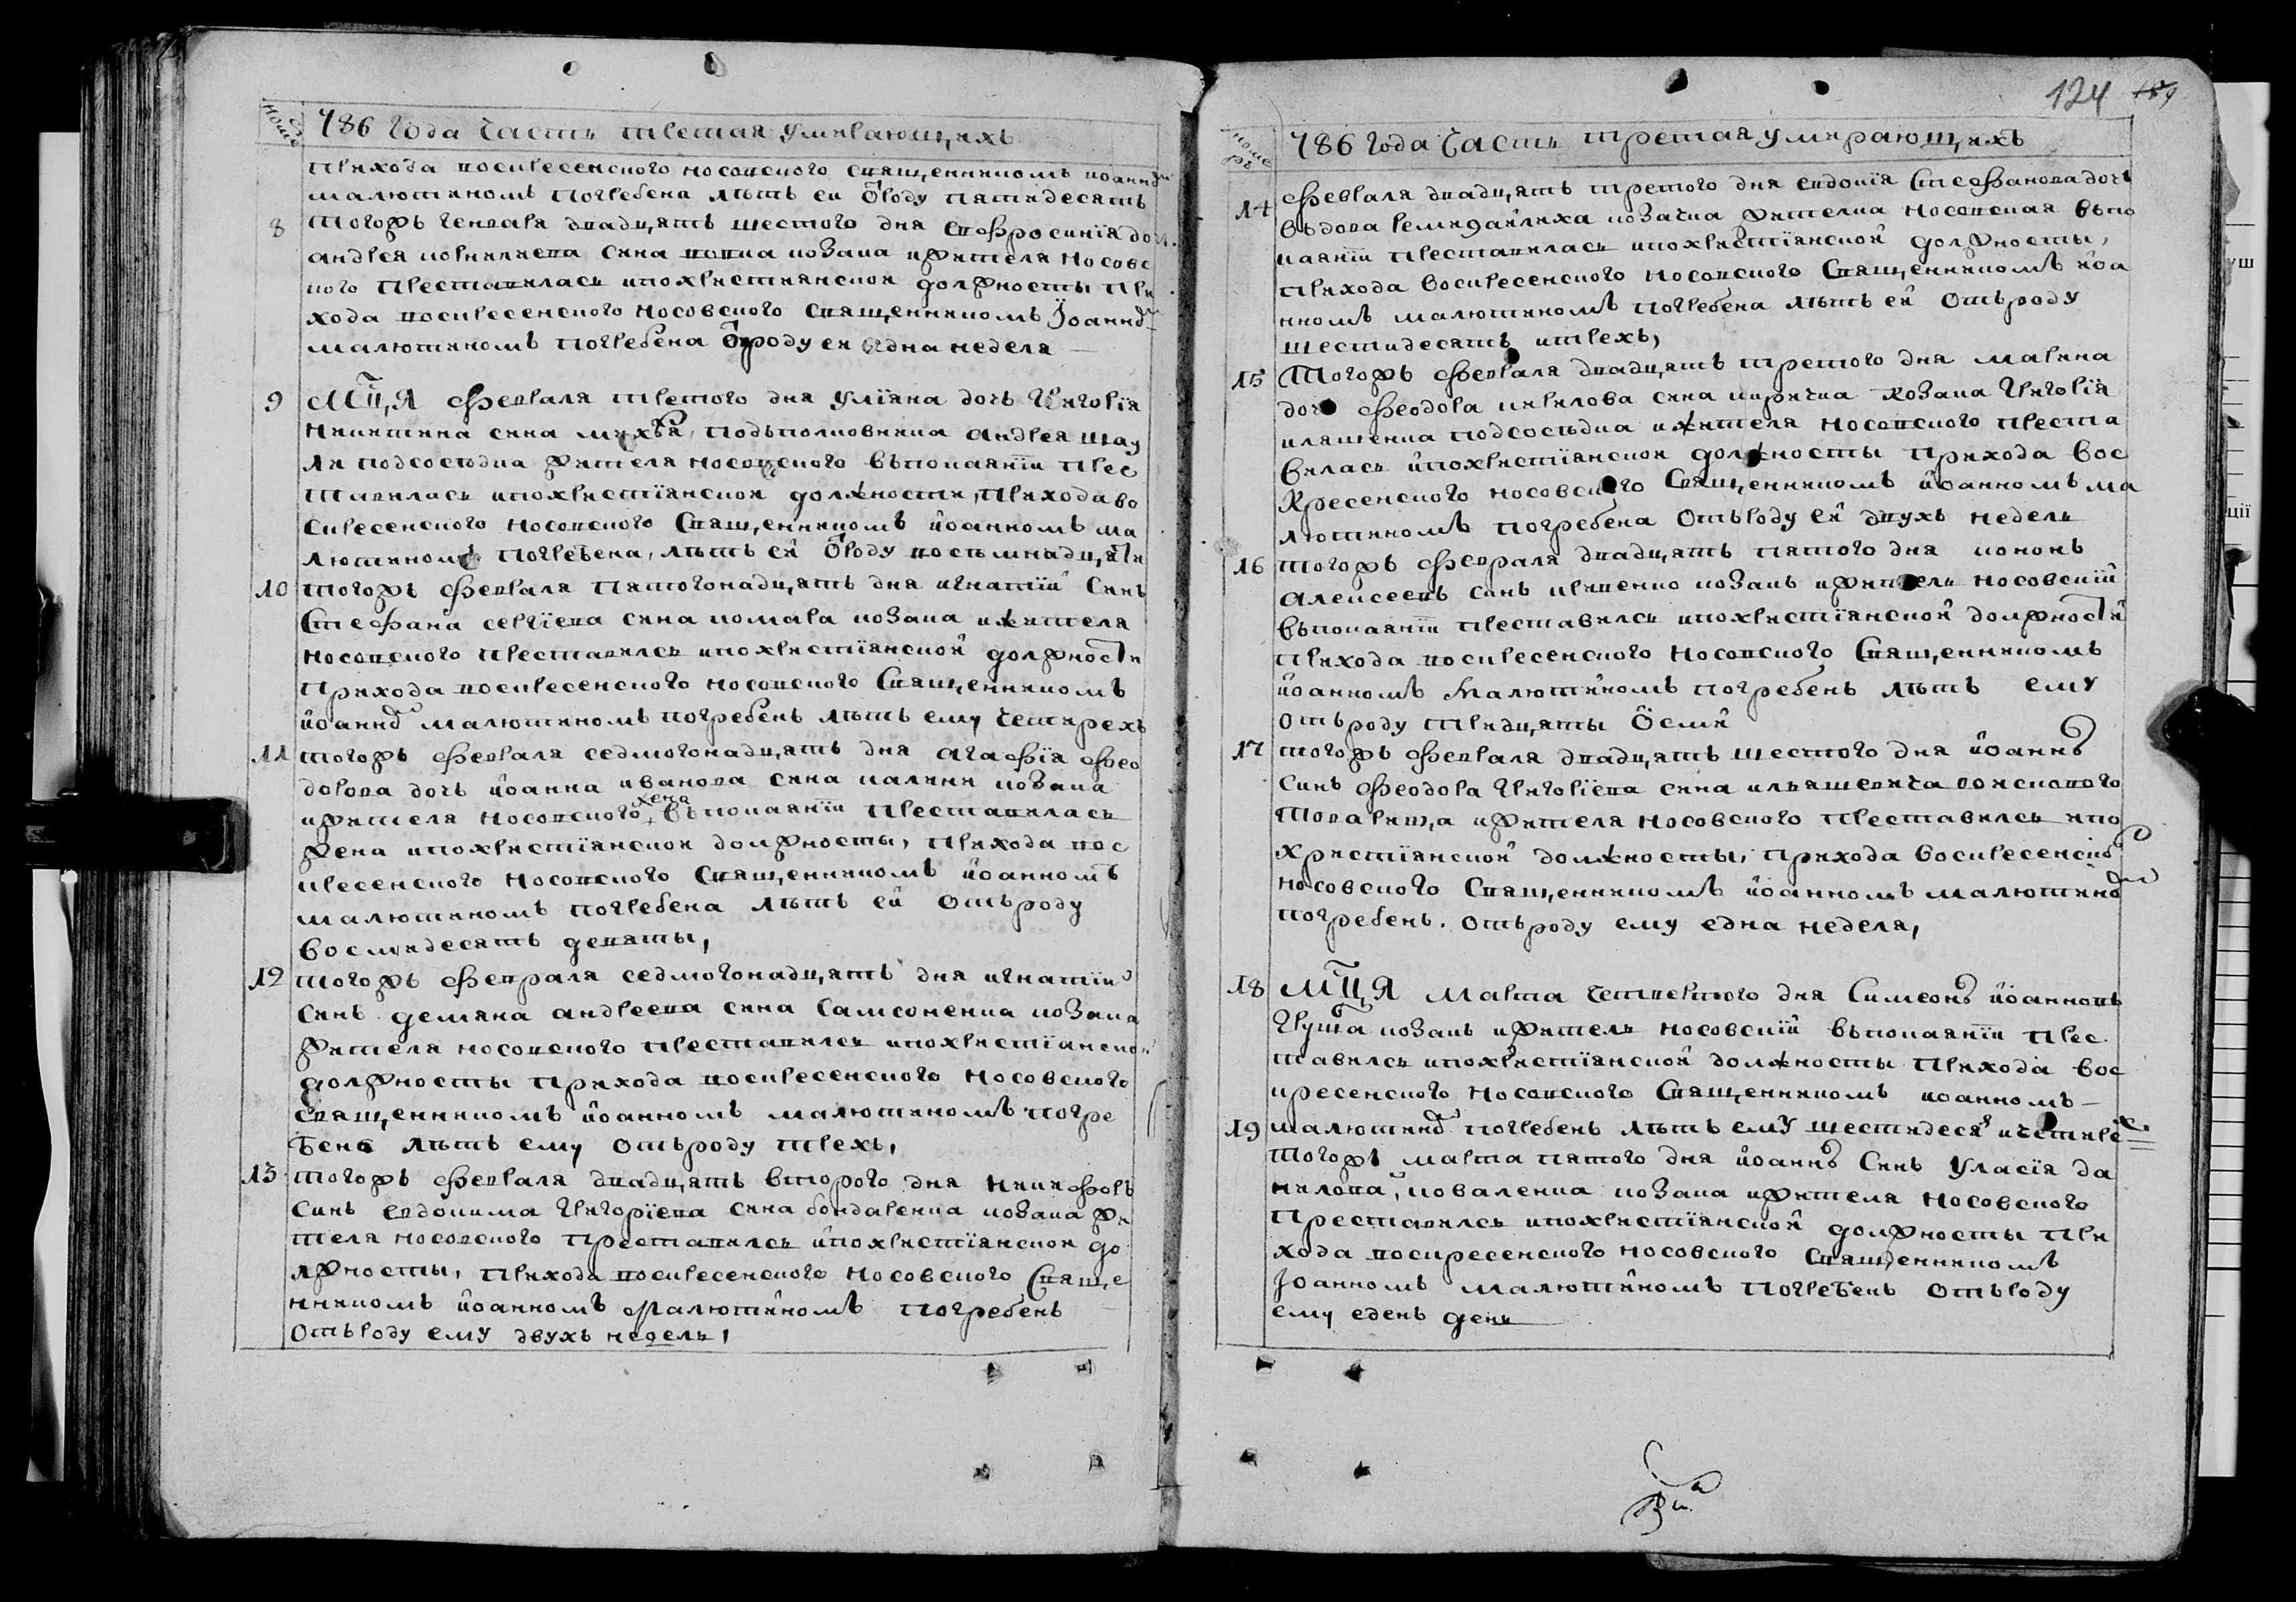 номеръ
786 года Часть третая умирающихъ
прихода воскресенского носовского священникомъ иоанномъ
малютиномъ погребена лѣтъ ей ѿроду пятидесять
8 тогожъ генваря двадцять шестого дня Евфросинїя дочь
андрея корнилиева сина козака ижителя носовс
кого преставилась ипохристиянской должности при
хода воскресенского носовского священникомъ Іоанномъ
малютиномъ погребена ѿроду ей една неделя
9 мц̃а февраля третого дня Улїяна дочь Григорїя
Никитина сина подъполковника андрея
подсосѣдка жителя носовского въпокаянїи прес
тавилась ипохристїянской должности, прихода во
скресенского носовского священникомъ иоанномъ ма
лютиномъ погребена, лѣтъ ей ѿроду восѣмнадцяти
10 тогожъ февраля пятогонадцять дня игнатїй синъ
Стефана сергїева сина комара козака ижителя
носовского преставилсь ипохристїянской должности
прихода воскресенского носовского священникомъ
иоанномъ малютиномъ погребенъ лѣтъ ему четирехъ
11 тогожъ февраля седмогонадцять дня агафїя фео
дорова дочь иоанна иванова сина калини козака
ижителя носовского жена въпокаянїи преставилась
жена ипохристїянской должности, прихода вос
кресенского носовского священникомъ иоанномъ
малютиномъ погребена лѣтъ ей отъроду
восмидесять девяти,
12 тогожъ февраля седмогонадцять дня игнатїй
синъ демяна андреева сина самсоненка козака
жителя носовского преставилсь ипохристїянской
должности прихода воскресенского носовского
священникомъ иоанномъ малютиномъ погре
бенъ лѣтъ ему отъроду трехъ,
13 тогожъ февраля двадцять второго дня никифоръ
синъ евдокима григорїева сина бондаренка козака жи
теля носовского преставилсь ипохристїянской до
лжности, прихода воскресенского носовского свяще
нникомъ иоанномъ малютиномъ погребенъ
отъроду ему двухъ недель,
124 189
номеръ
786 года Часть третая умирающихъ
14 февраля двадцять третого дня евдокїя Стефанова дочь
въдова козачка жителка носовская въпо
каянїи преставилась ипохристїянской должности,
прихода воскресенского носовского священникомъ иоа
нномъ малютиномъ погребена лѣтъ ей отъроду
шестидесять итрехъ,
15 тогожъ февраля двадцять третого дня марина
дочь феодора кирилова сина козака григорїя
иляшенка подсосѣдка ижителя носовского преста
вилась ипохристїянской должности прихода вос
кресенского носовского священникомъ иоанномъ ма
лютиномъ погребена отъроду ей двухъ недель
16 тогожъ февраля двадцять пятого дня кононъ
алексеевъ синъ козакъ ижитель носовскїй
въпокаянїи преставилсь ипохристїянской должности
прихода воскресенского носовского священникомъ
иоанномъ малютиномъ погребенъ лѣтъ ему
отъроду тридцяти осми
17 тогожъ февраля двадцять шестого дня иоаннъ
синъ феодора григорїева сина ильяшевича войскового
товарища ижителя носовского преставилсь ипо
христїянской должности, прихода воскресенского
носовского священникомъ иоанномъ малютиномъ
погребенъ. отъроду ему една неделя,
18 мц̃а марта четвертого дня Симеонъ иоанновъ
козакъ ижитель носовскїй въпокаянїи прес
тавилсь ипохристїянской должности прихода вос
кресенского носовского священникомъ иоанномъ
малютиномъ погребенъ лѣтъ ему шестидесят ичетире
19 тогожъ марта пятого дня иоаннъ синъ Уласїя да
нилова, коваленка козака ижителя носовского
преставилсь ипохристїянской должности при
хода воскресенского носовского священникомъ
Іоанномъ малютиномъ погребенъ отъроду
ему еденъ день